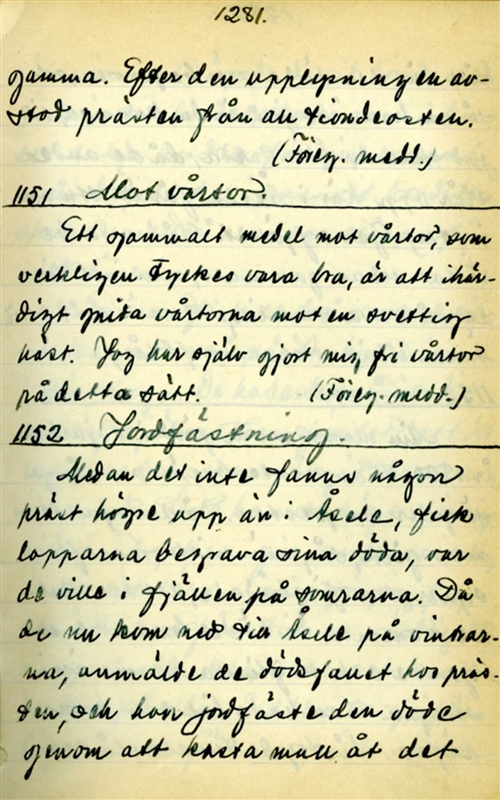 1281.
gamma. Efter den upplysningen av-
stod prästen från all tiondeosten.
(Föreg. medd.)
1151 Mot vårtor.
Ett gammalt medel mot vårtor, som
verkligen tyckes vara bra, är att ihär-
digt gnida vårtorna mot en svettig
häst. Jag har själv gjort mig fri vårtor
på detta sätt. (Föreg. medd.)
1152 Jordfästning.
Medan det inte fanns någon
präst högre upp än i Åsele, fick
lapparna begrava sina döda, var
de ville i fjällen på somrarna. Då
de nu kom ned till Åsele på vintrar-
na, anmälde de dödsfallet hos präs-
ten, och han jordfäste den döde
genom att kasta mull åt det